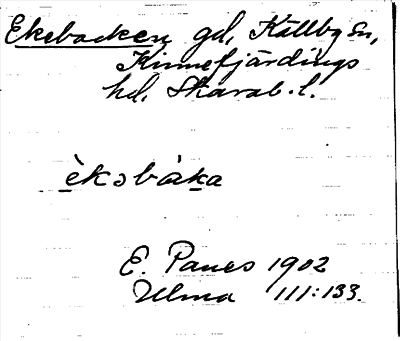 Ekebacken gd, Källby sn,
Kinnefjärdings
hd, Skarab. l.
èkəbàka
E. Panes 1902
Ulma 111:133.